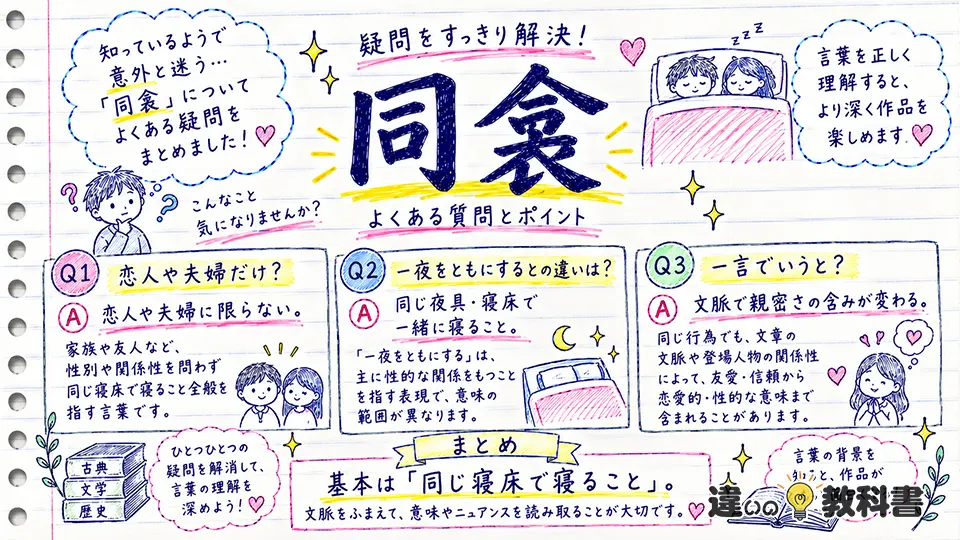 知っているようで
意外と迷う…
「同衾」について
よくある疑問を
まとめました！
疑問をすっきり解決！
同衾
よくある質問とポイント
zzz
言葉を正しく
理解すると、
より深く作品を
楽しめます。
こんなこと
気になりませんか？
Q1 恋人や夫婦だけ？
A 恋人や夫婦に限らない。
家族や友人など、
性別や関係性を問わず
同じ寝床で寝ること全般を
指す言葉です。
Q2 一夜をともにするとの違いは？
A 同じ夜具・寝床で
一緒に寝ること。
「一夜をともにする」は、
主に性的な関係をもつこと
を指す表現で、意味の
範囲が異なります。
Q3 一言でいうと？
A 文脈で親密さの含みが変わる。
同じ行為でも、文章の
文脈や登場人物の関係性
によって、友愛・信頼から
恋愛的・性的な意味まで
含まれることがあります。
古典
文学
歴史
ひとつひとつの
疑問を解消して、
言葉の理解を
深めよう！
まとめ
基本は「同じ寝床で寝ること」。
文脈をふまえて、意味やニュアンスを読み取ることが大切です。
言葉の背景を
と、作品が
違いの教科書